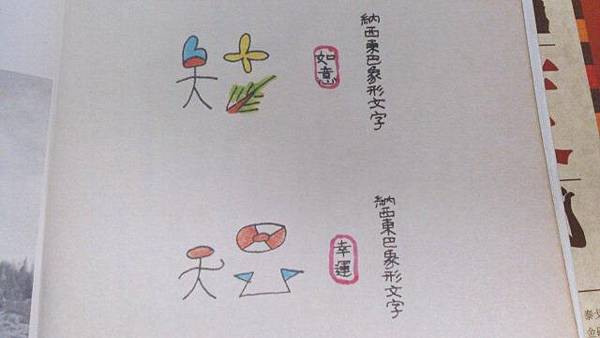 納西東巴象形文字
如意
納西東巴象形文字
幸運